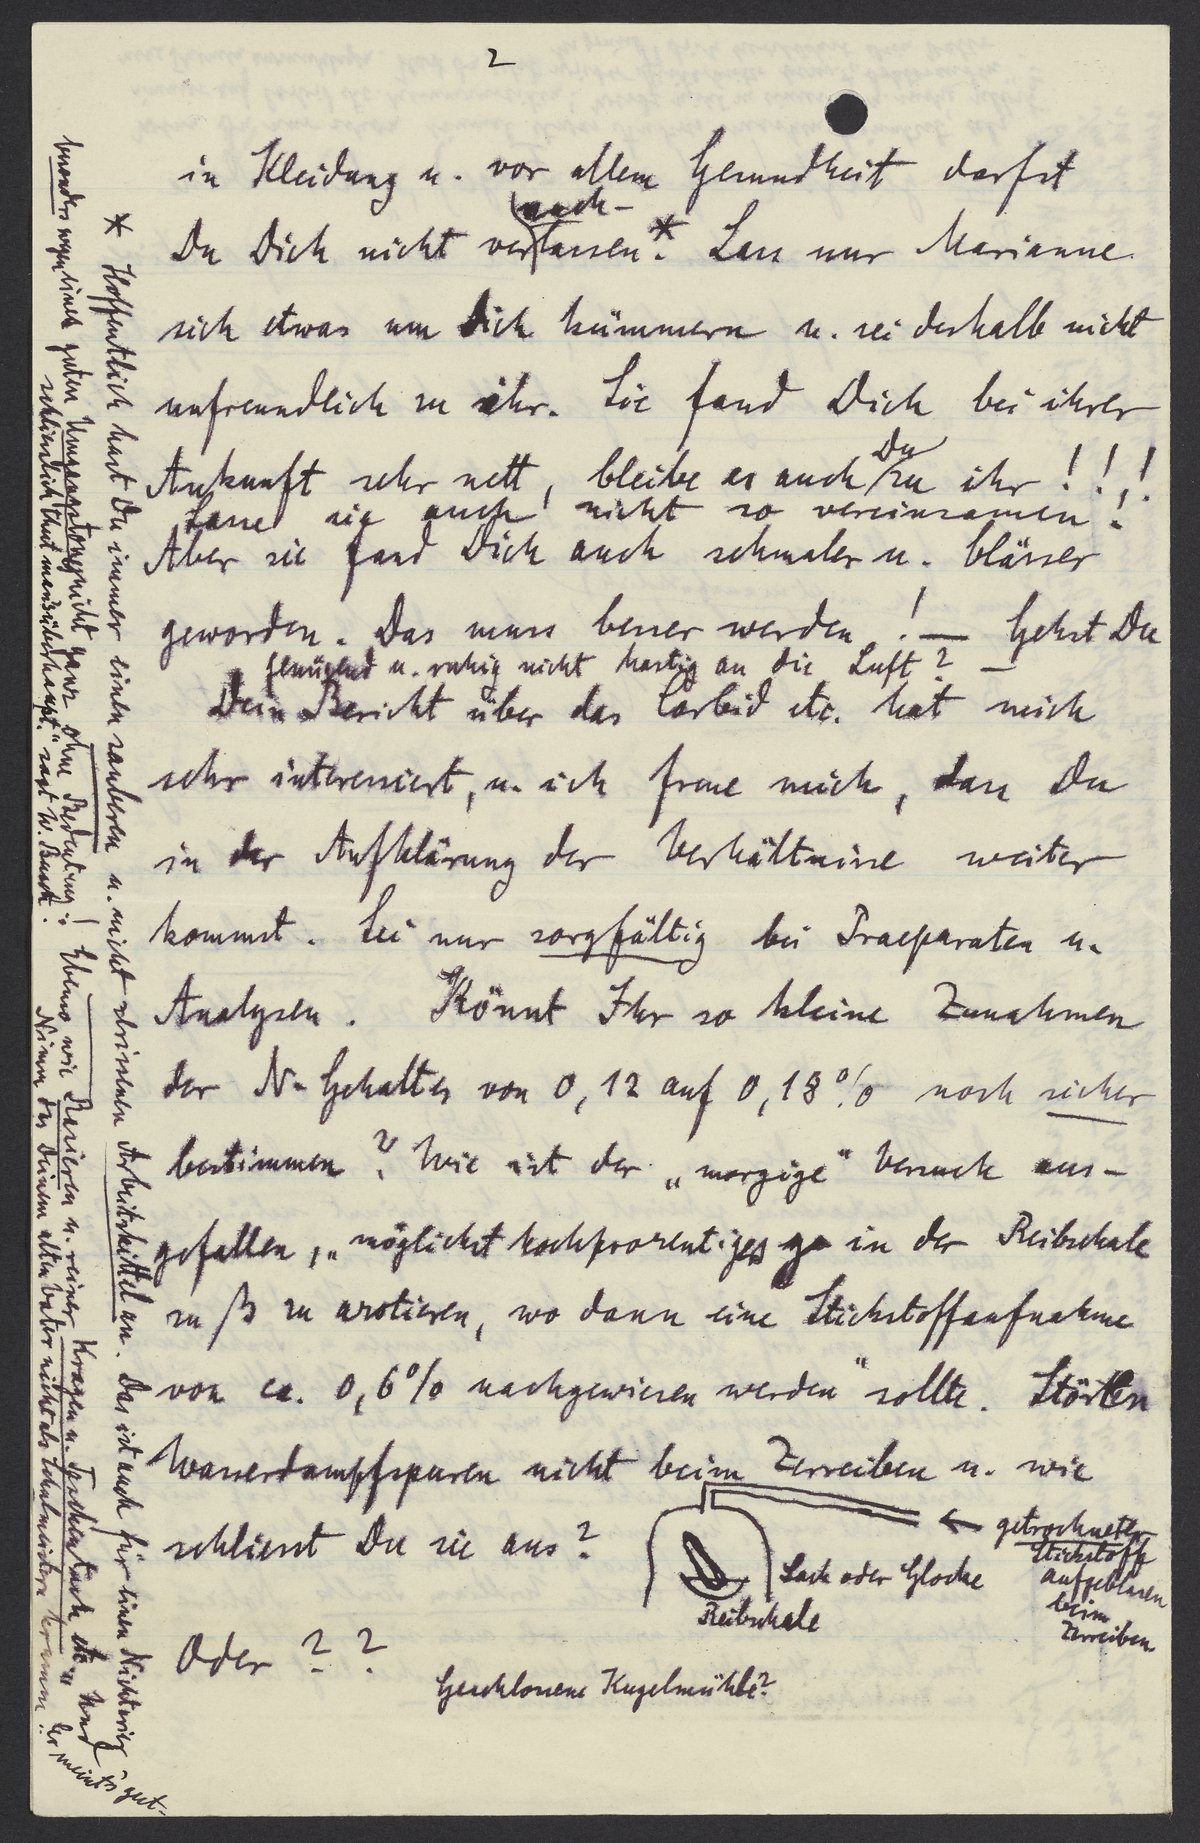 2
in Kleidung u. vor allem Gesundheit darfst
nach-
Du Dich nicht verlassen.* Lass nur Marianne
sich etwas um Dich kümmern u. sei deshalb nicht
unfreundlich zu ihr. Sie fand Dich bei ihrer
Ankunft sehr nett, bleibe es auch Du zu ihr !!!
Lasse sie auch nicht so vereinsamen!
Aber sie fand Dich auch schmaler u. blässer
geworden. Das muss besser werden! — Gehst Du
genügend u. ruhig nicht hastig an die Luft? —
Dein Bericht über das Carbid etc. hat mich
sehr interessiert, u. ich freue mich, dass Du
in der Aufklärung der Verhältnisse weiter
kommst. Sei nur sorgfältig bei Praeparaten u.
Analysen. Könnt Ihr so kleine Zunahmen
der N-Gehaltes von 0,12 auf 0,18% noch sicher
bestimmen? Wie ist der „morgige“ Versuch aus-
gefallen, „möglichst hochprozentiges in der Reibschale
zu β zu azotieren, wo dann eine Stickstoffaufnahme
von ca. 0,6% nachgewiesen werden“ sollte. Störten
Wasserdampfspuren nicht beim Zerreiben u. wie
schliesst Du sie aus?
← getrockneter
Stickstoff
aufgeblasen
beim
Zerreiben
Sack oder Glocke
Reibschale
Oder ? ?
Geschlossene Kugelmühle?
* Hoffentlich hast Du immer einen sauberen u. nicht zerrissenen Arbeitskittel an. Das ist auch für einen Nichtarier gut-
besonders wegen eines guten Umgangstones nicht ganz ohne Bedeutung! Ebenso wie Rasieren u. reiner Kragen u. Taschentuch etc. Und
schliesslich thut man's überhaupt." sagt W. Busch. Nimm das Deinem alten Vater nicht als Schulmeisterei krumm! Er meint's